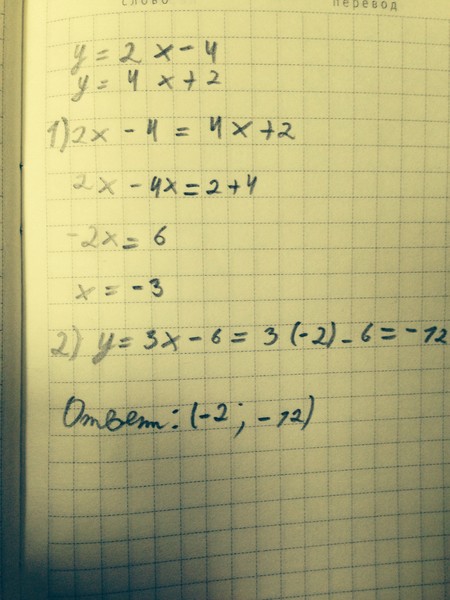 слово перевод
y = 2x - 4
y = 4x + 2
1) 2x - 4 = 4x + 2
2x - 4x = 2 + 4
-2x = 6
x = -3
2) y = 3x - 6 = 3(-2) - 6 = -12
Ответ: (-2; -12)